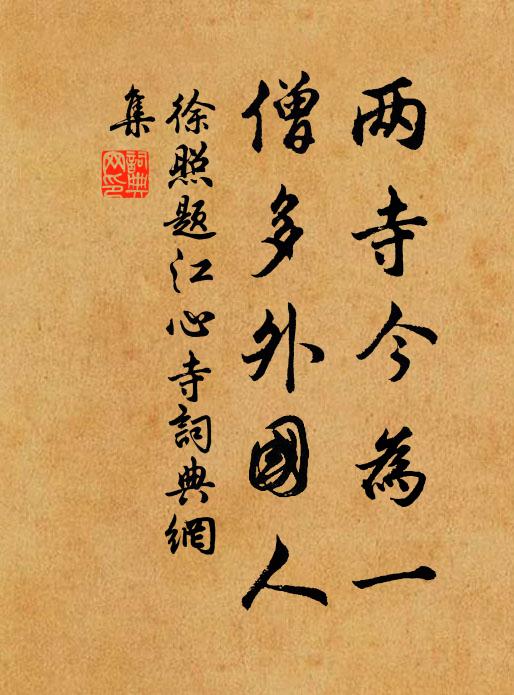 两寺今為一
僧多外國人
徐照题江心寺詞典網
集
詞典
网印